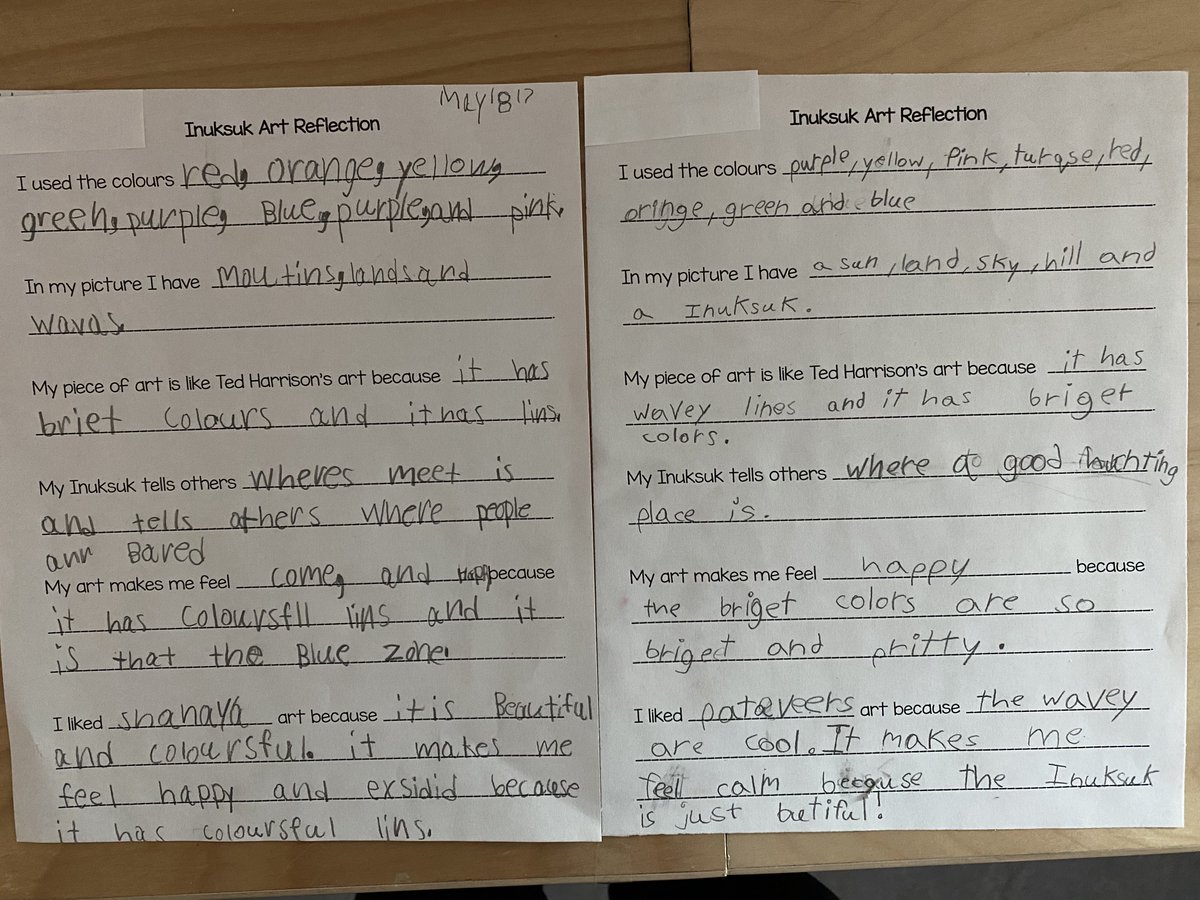 May 18 17
Inuksuk Art Reflection
I used the colours red, orange, yellow,
green, purple, Blue, purple, and pink.
In my picture I have moutins, lands and
wavas.
My piece of art is like Ted Harrison's art because it has
briet colours and it has lins.
My Inuksuk tells others wheres meet is
and tells others where people
Bared
My art makes me feel come, and happy because
it has coloursfll lins and it
is that the Blue zone.
I liked shanaya art because it is Beautiful
and coloursful. it makes me
feel happy and exsidid because
it has coloursful lins.
Inuksuk Art Reflection
I used the colours purple, yellow, Pink, turqse, red,
oringe, green and blue
In my picture I have a sun, land, sky, hill and
a Inuksuk.
My piece of art is like Ted Harrison's art because it has
wavey lines and it has briget
colors.
My Inuksuk tells others where a good
place is.
My art makes me feel happy because
the briget colors are so
briged and pritty.
I liked pataveers art because the wavey
are cool. It makes me
feel calm because the Inuksuk
is just butiful!